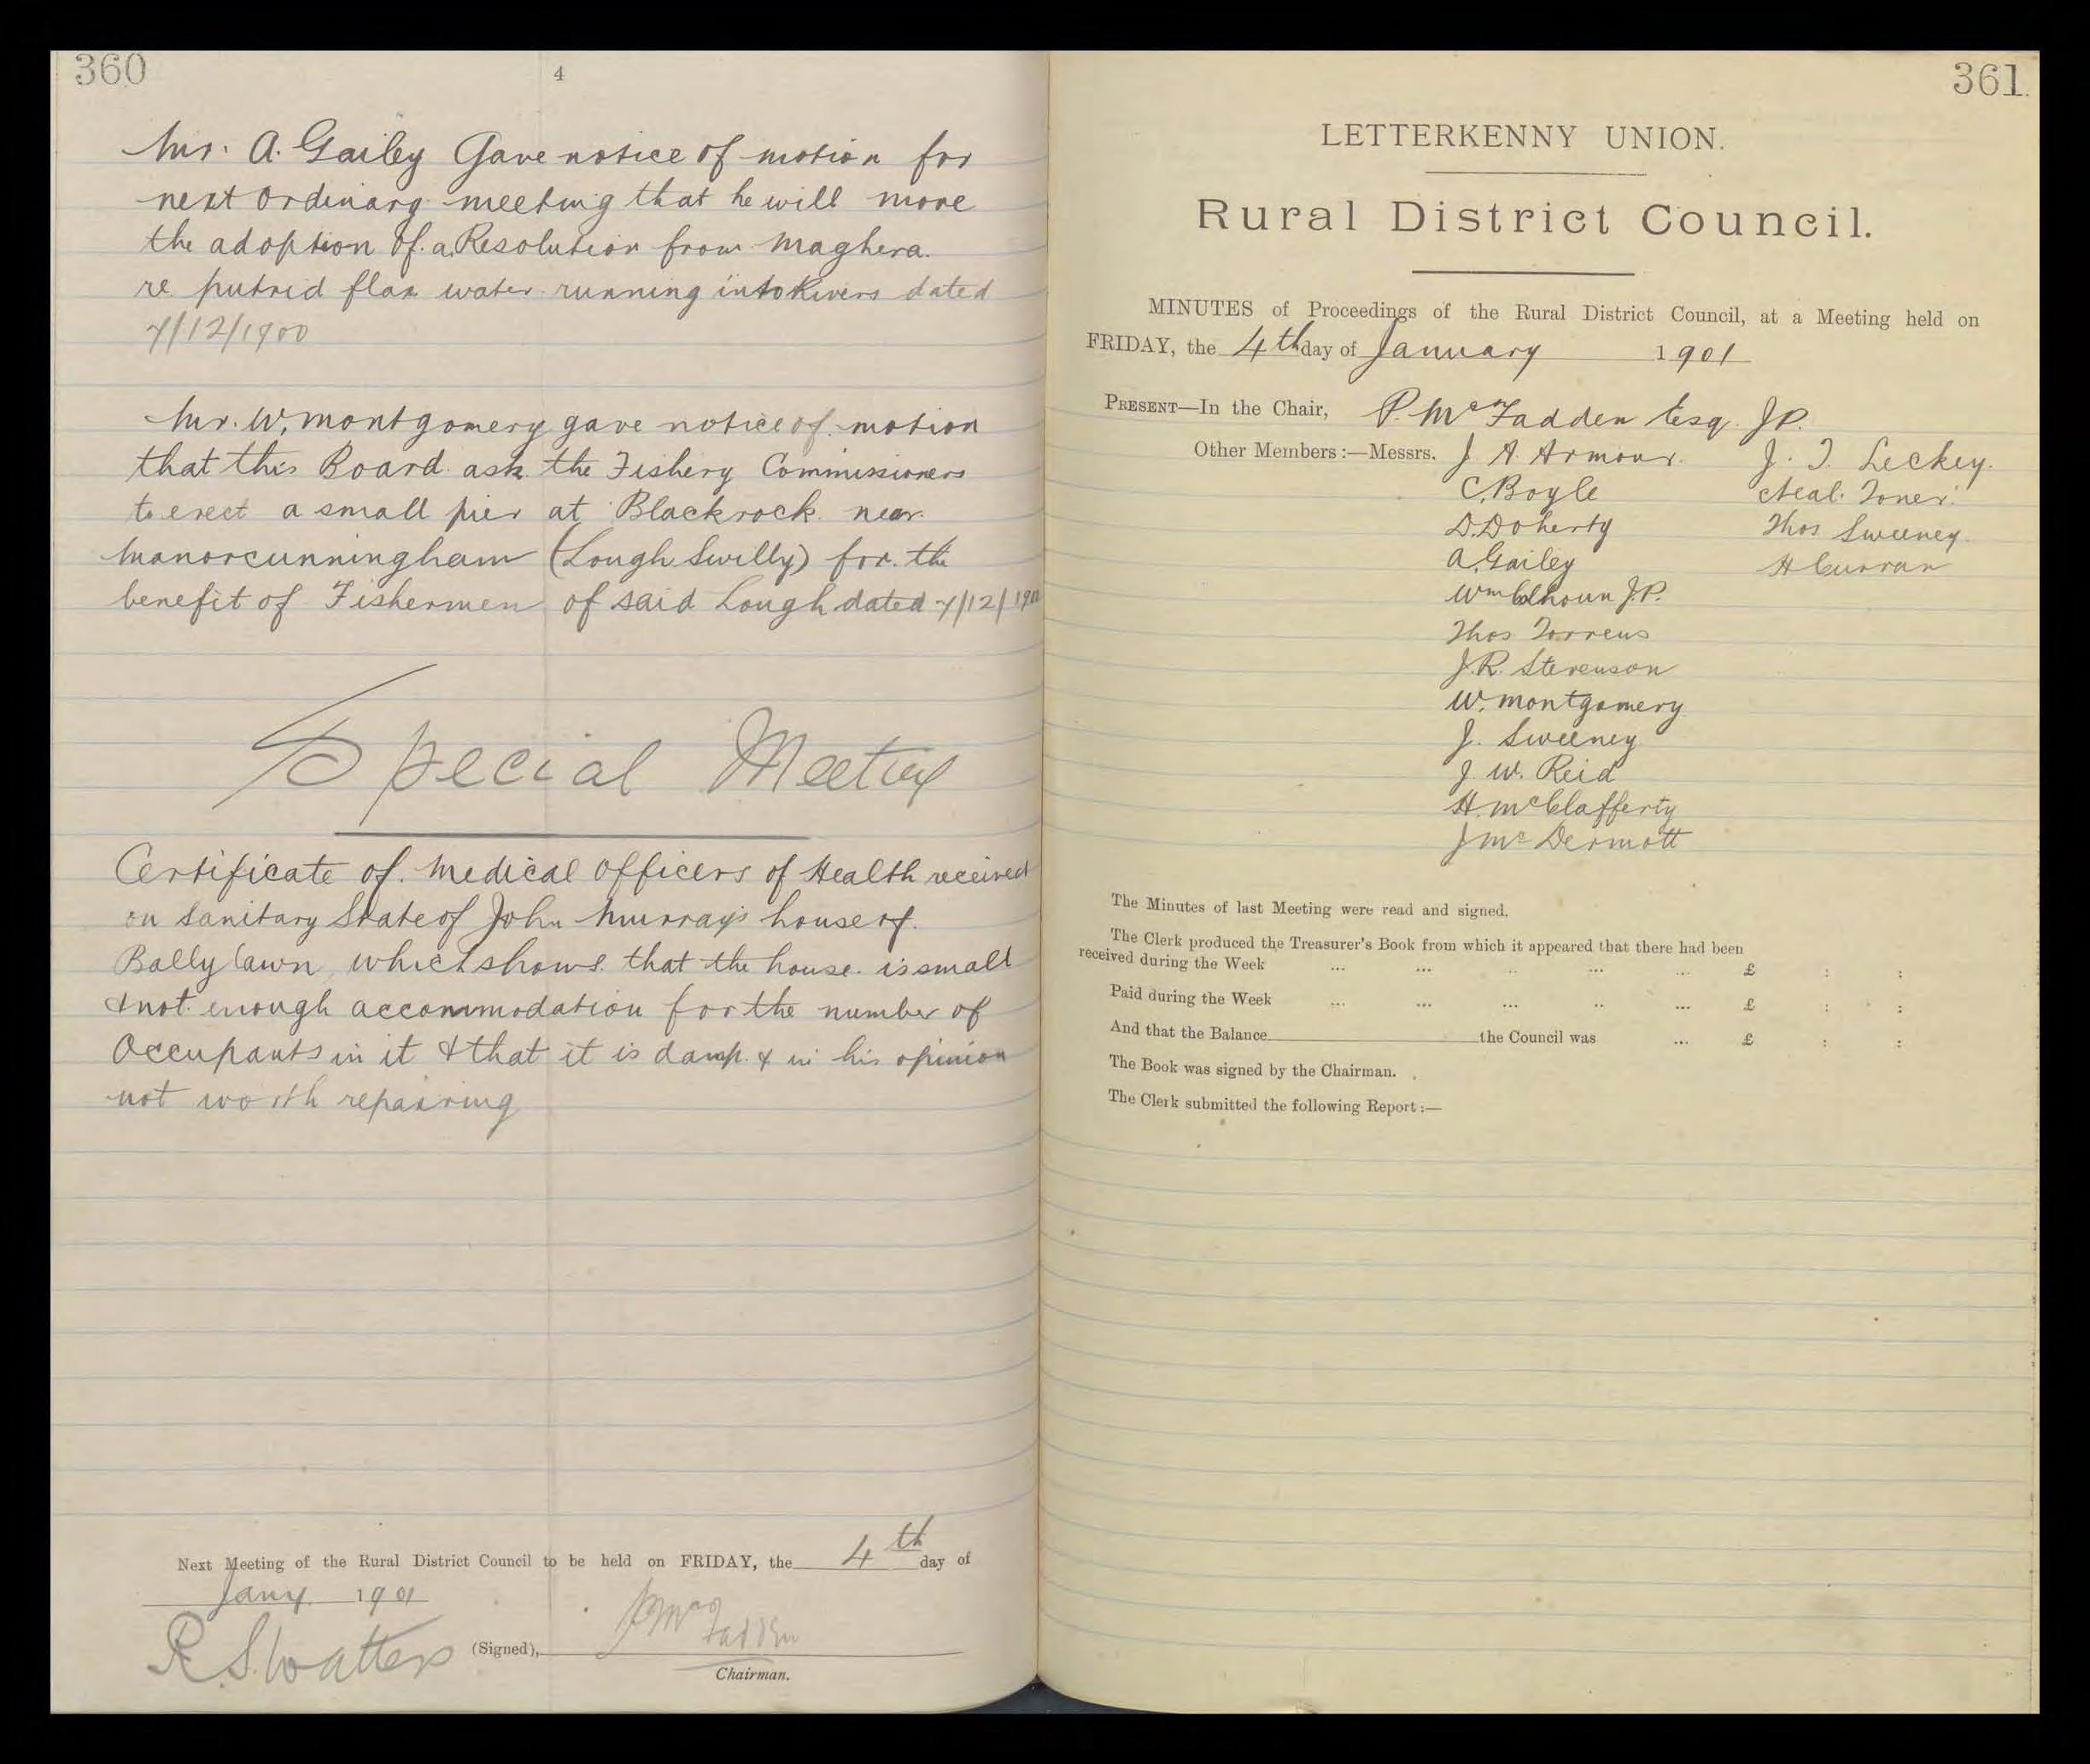 360
4
Mr. A. Gailey Gave notice of motion for
next ordinary meeting that he will move
the adoption of a Resolution from Maghera
re putrid flax water running into Rivers dated
7/12/1900
Mr. W. Montgomery gave notice of motion
that this Board ask the Fishery Commissioners
to erect a small pier at Blackrock near
Manorcunningham (Lough Swilly) for the
benefit of Fishermen of said Lough dated 7/12/1900
Special Meeting
Certificate of Medical Officers of Health received
on Sanitary State of John Murray's house of
Ballylawn which shows that the house is small
& not enough accommodation for the number of
Occupants in it & that it is damp & in his opinion
not worth repairing
Next Meeting of the Rural District Council to be held on FRIDAY, the 4th day of
Jany. 1901
R. S. Watters (Signed), P McFadden
Chairman.
361
LETTERKENNY UNION.
Rural District Council.
MINUTES of Proceedings of the Rural District Council, at a Meeting held on
FRIDAY, the 4th day of January 1901
PRESENT—In the Chair, P. McFadden Esq. J.P.
Other Members:—Messrs. J A Armour. J. T. Leckey.
C. Boyle Neal Toner
D. Doherty Thos Sweeney
A. Gailey H Curran
Wm Colhoun J.P.
Thos Torrens
J. R. Stevenson
W. Montgomery
J. Sweeney
J. W. Reid
H. McClafferty
J McDermott
The Minutes of last Meeting were read and signed.
The Clerk produced the Treasurer's Book from which it appeared that there had been
received during the Week ... ... ... ... ... £ : :
Paid during the Week ... ... ... ... ... £ : :
And that the Balance the Council was ... £ : :
The Book was signed by the Chairman.
The Clerk submitted the following Report:—